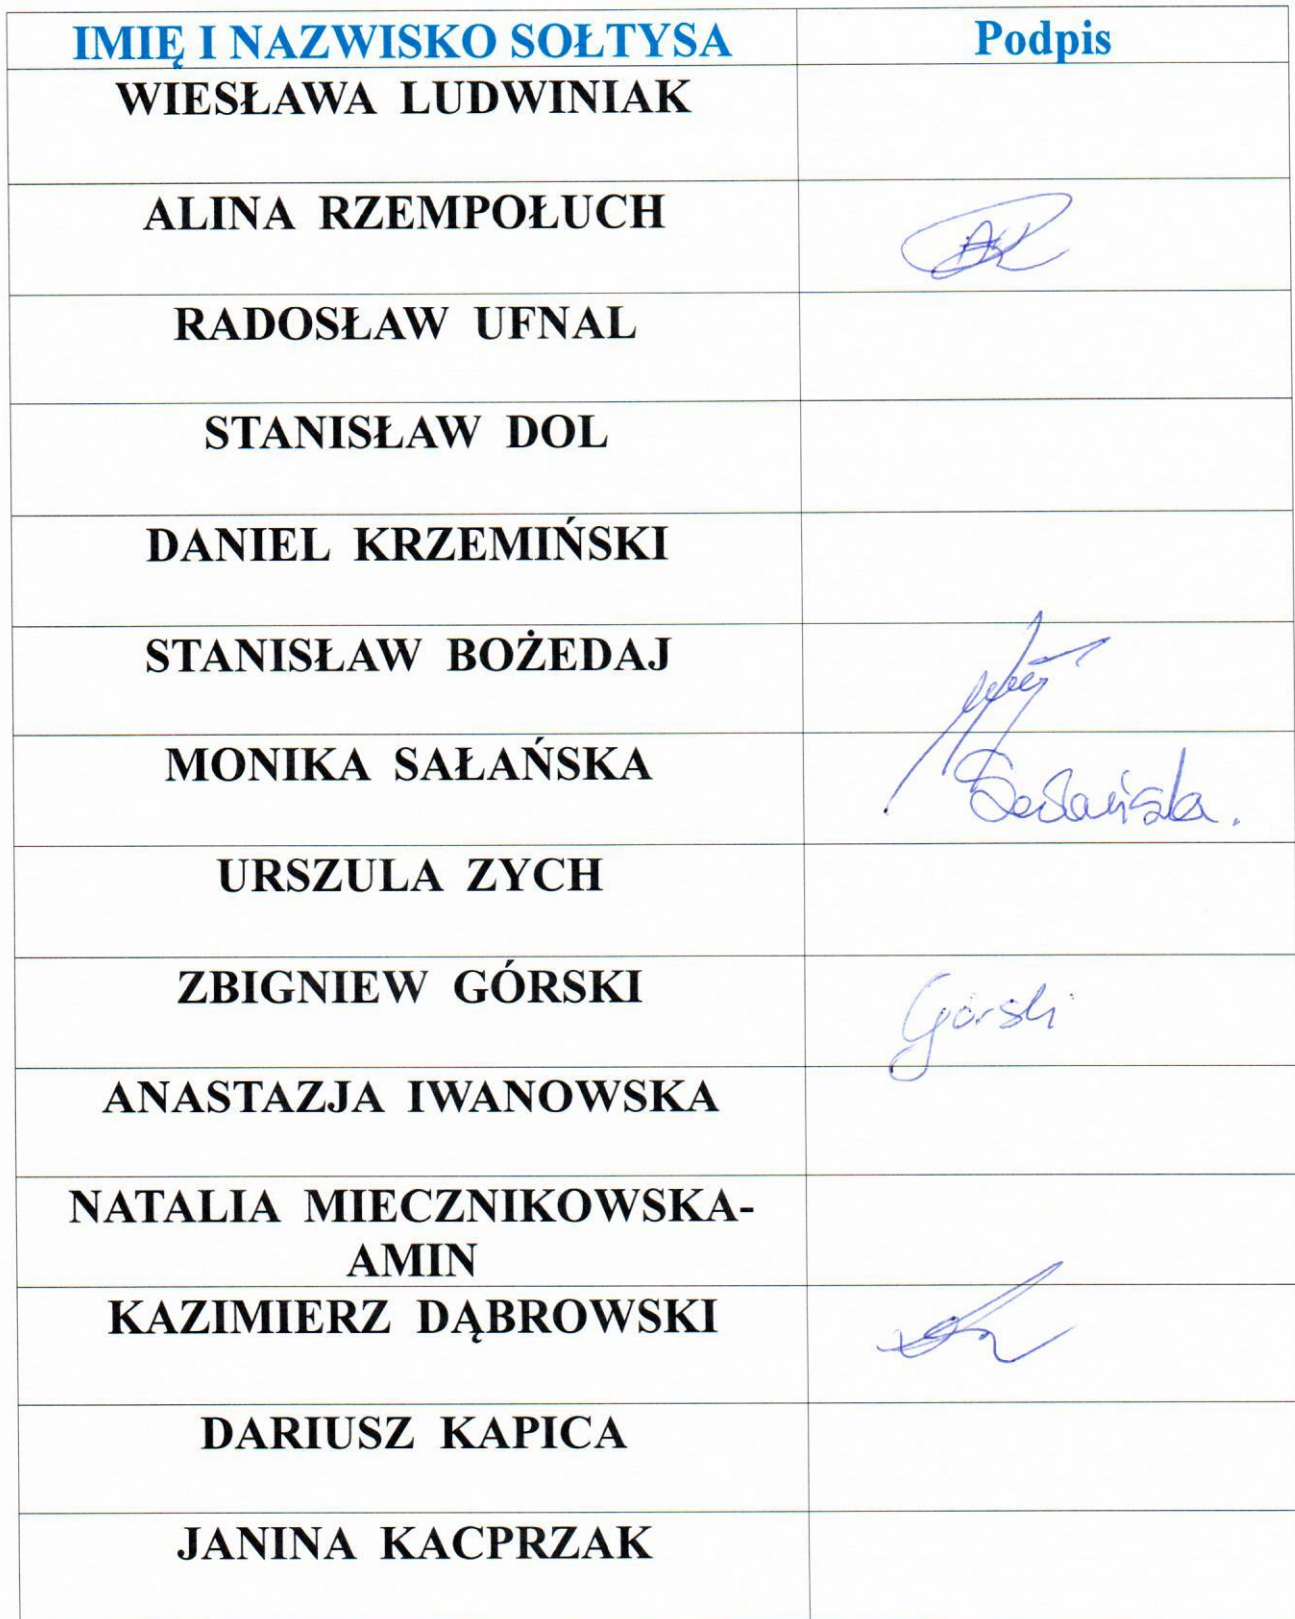 IMIĘ I NAZWISKO SOŁTYSA Podpis
WIESŁAWA LUDWINIAK
ALINA RZEMPOŁUCH
RADOSŁAW UFNAL
STANISŁAW DOL
DANIEL KRZEMIŃSKI
STANISŁAW BOŻEDAJ
MONIKA SAŁAŃSKA Sałańska.
URSZULA ZYCH
ZBIGNIEW GÓRSKI Górski
ANASTAZJA IWANOWSKA
NATALIA MIECZNIKOWSKA-
AMIN
KAZIMIERZ DĄBROWSKI
DARIUSZ KAPICA
JANINA KACPRZAK